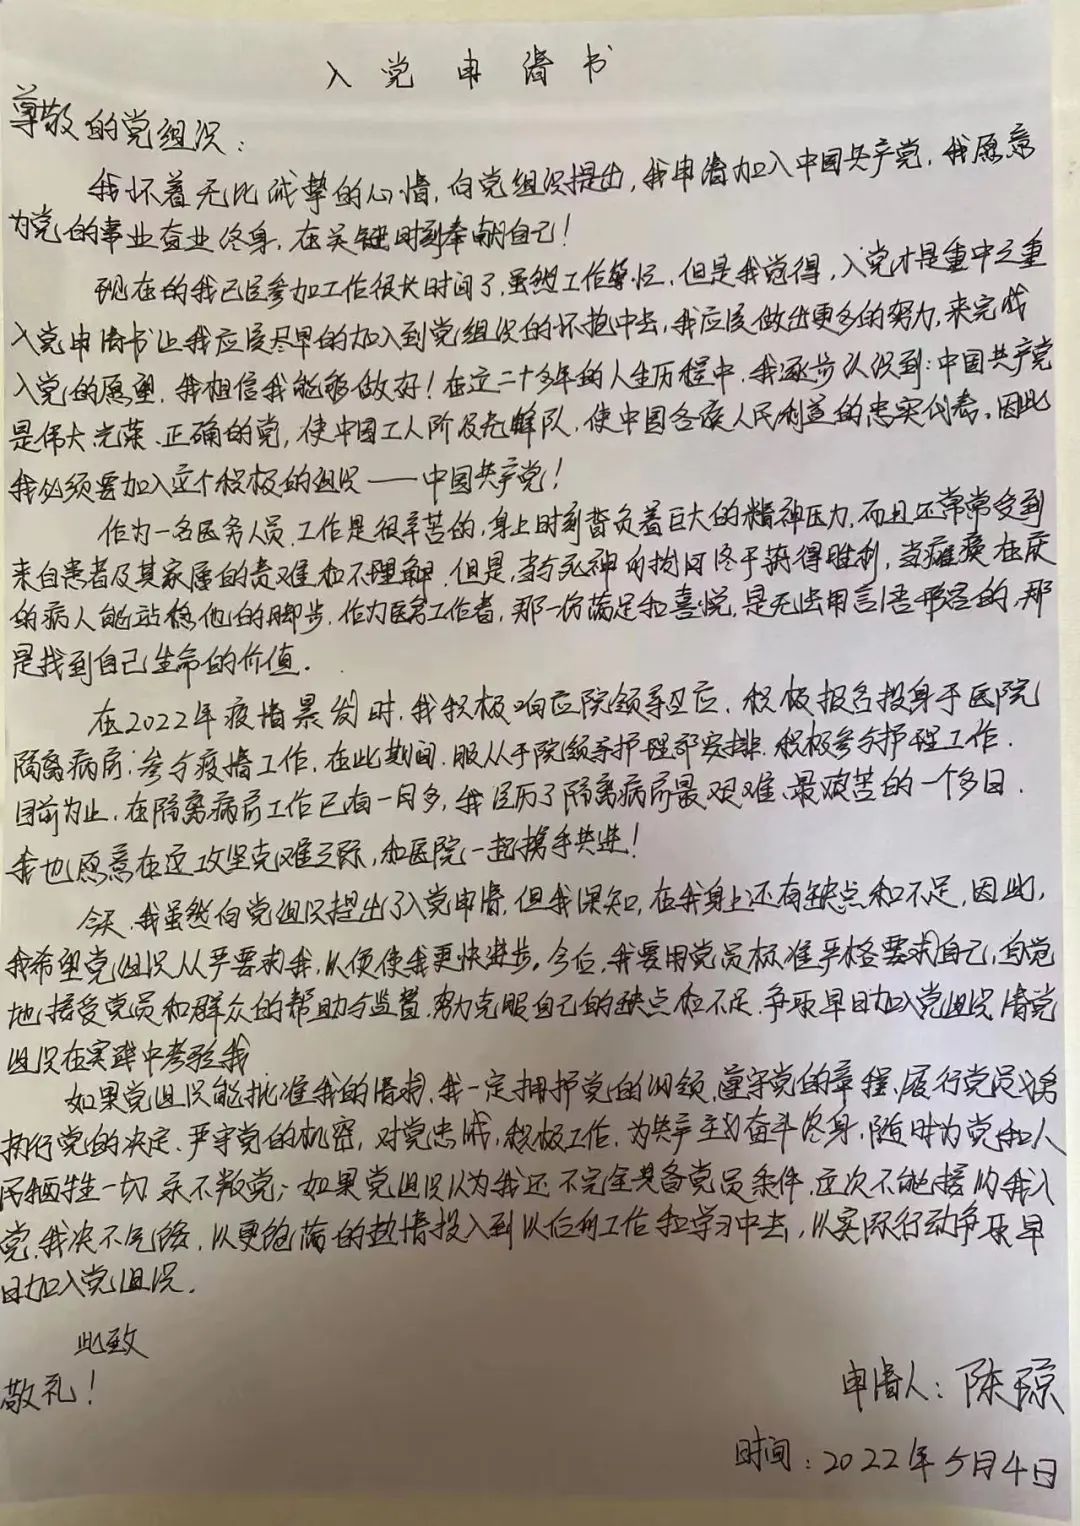 入党申请书
尊敬的党组织：
我怀着无比诚挚的心情，向党组织提出，我申请加入中国共产党，我愿意
为党的事业奋业终身，在关键时刻奉献自己！
现在的我已经参加工作很长时间了，虽然工作繁忙，但是我觉得，入党才是重中之重
入党申请书让我应该尽早的加入到党组织的怀抱中去，我应该做出更多的努力，来完成
入党的愿望，我相信我能够做好！在这二十多年的人生历程中，我逐步认识到：中国共产党
是伟大、光荣、正确的党，使中国工人阶级先锋队，使中国各族人民利益的忠实代表。因此
我必须要加入这个积极的组织——中国共产党！
作为一名医务人员，工作是很辛苦的，身上时刻背负着巨大的精神压力，而且还常常受到
来自患者及其家属的责难和不理解，但是，当与死神的抗衡终于获得胜利，当瘫痪在床
的病人能站稳他的脚步，作为医务工作者，那一份满足和喜悦，是无法用言语形容的，那
是找到自己生命的价值．
在2022年疫情暴发时，我积极响应院领导号应，积极报名投身于医院
隔离病房：参与疫情工作，在此期间，服从于院领导护理部安排，积极参与护理工作．
目前为止，在隔离病房工作已有一月多，我经历了隔离病房最艰难、最艰苦的一个多月．
我也愿意在这攻坚克难之际，和医院一起携手共进！
今天，我虽然向党组织提出了入党申请，但我深知，在我身上还有缺点和不足，因此，
我希望党组织从严要求我，以便使我更快进步。今后，我要用党员标准严格要求自己，自觉
地接受党员和群众的帮助与监督，努力克服自己的缺点和不足，争取早日加入党组织，请党
组织在实践中考验我
如果党组织能批准我的请求，我一定拥护党的纲领，遵守党的章程，履行党员义务
执行党的决定、严守党的机密，对党忠诚，积极工作，为共产主义奋斗终身，随时为党和人
民牺牲一切，永不叛党；如果党组织认为我还不完全具备党员条件，这次不能接纳我入
党，我决不气馁，以更饱满的热情投入到以后的工作和学习中去，以实际行动争取早
日加入党组织．
此致
敬礼！
申请人：陈琼
时间：2022年5月4日